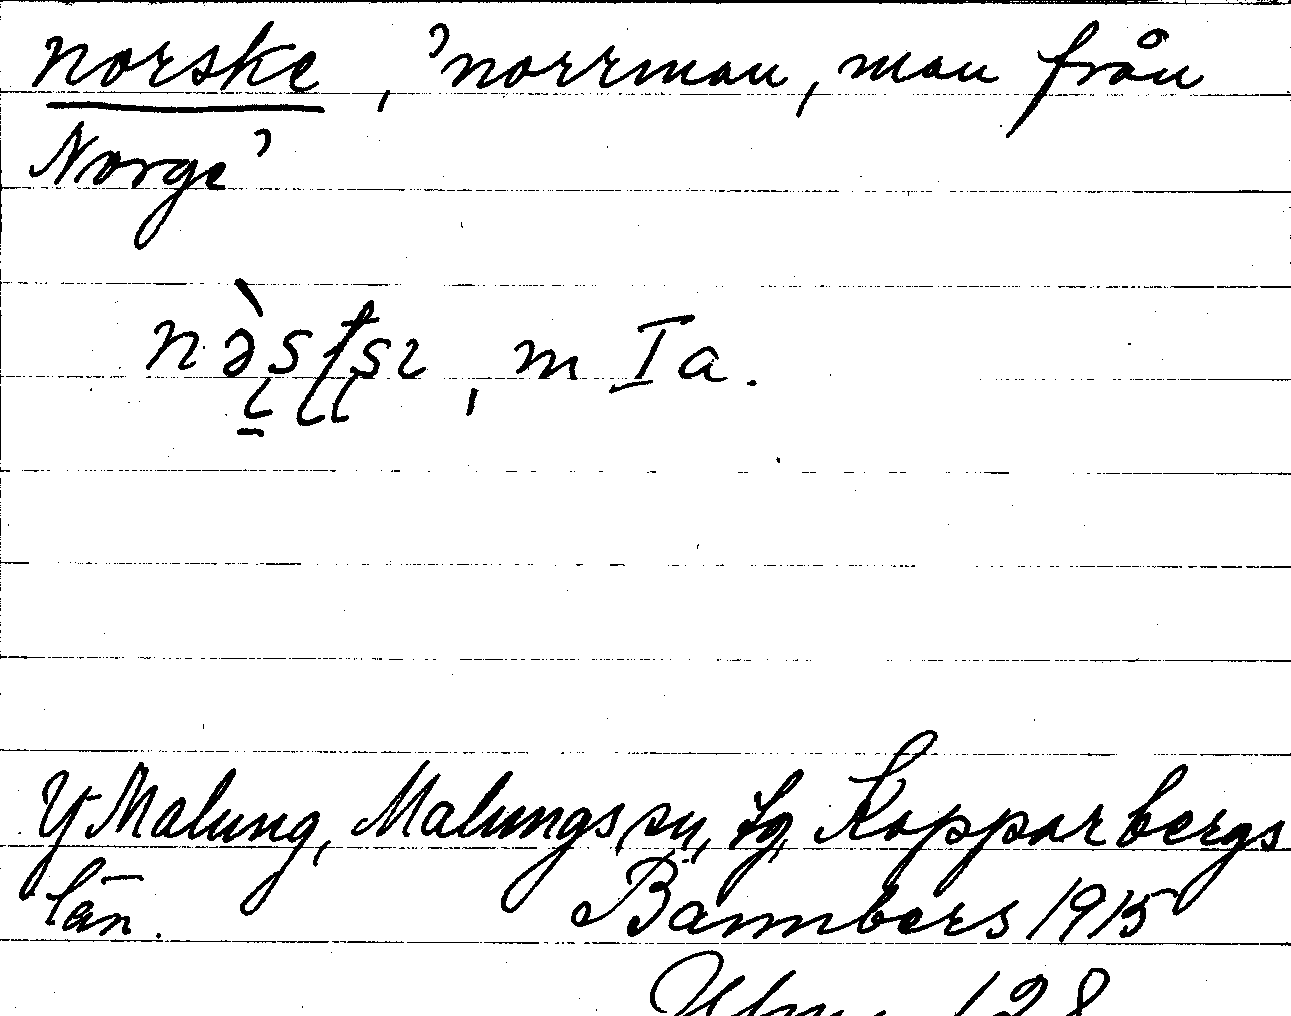 norske, ’norrman, man från
Norge’
m Ia.
Malung, Malungs Kopparbergs
län. Bannbers 1915
128